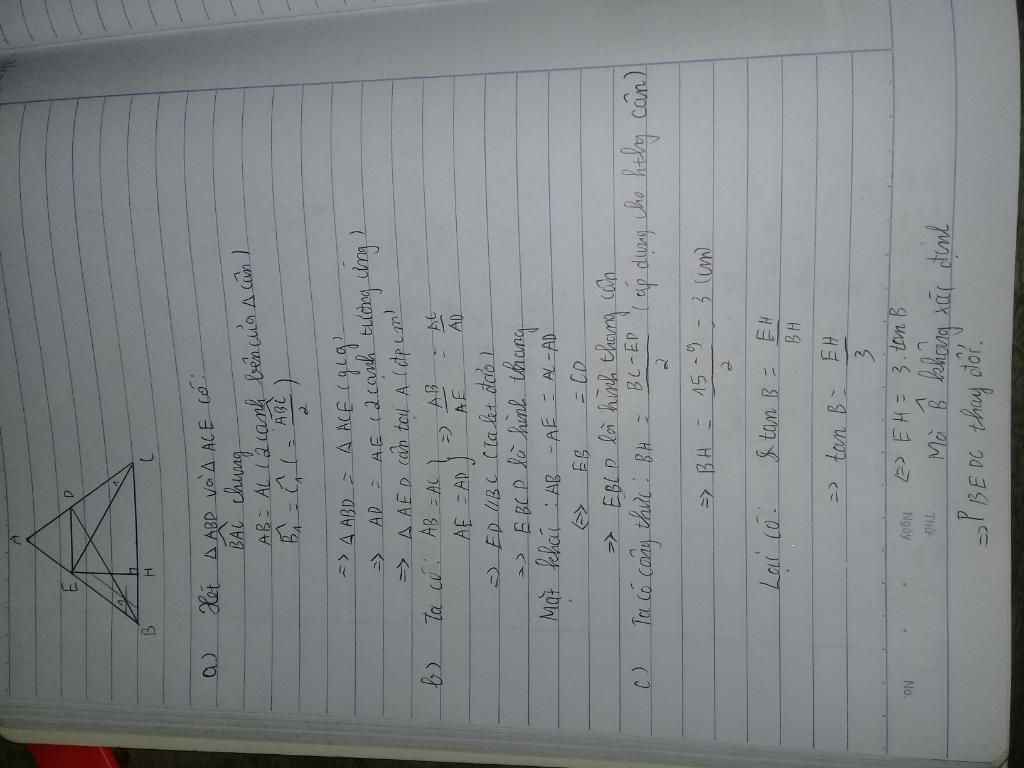 A
E
D
B
H
C
a) Xét △ABD và △ACE có:
BAC chung
AB = AC (2 cạnh bên của △ cân)
B₁ = C₁ ( = ABC / 2 )
=> △ABD = △ACE (gcg)
=> AD = AE (2 cạnh tương ứng)
=> △AED cân tại A (đpcm)
b) Ta có: AB = AC
AE = AD } => AB / AE = AC / AD
=> ED // BC (Ta lét đảo)
=> EBCD là hình thang
Mặt khác: AB - AE = AC - AD
<=> EB = CD
=> EBCD là hình thang cân
c) Ta có công thức: BH = BC - ED / 2 (áp dụng cho hthg cân)
=> BH = 15 - 9 / 2 = 3 (cm)
Lại có: tan B = EH / BH
=> tan B = EH / 3
<=> EH = 3. tan B
Mà B không xác định
=> P BEDC thay đổi.
No.
Thứ
Ngày